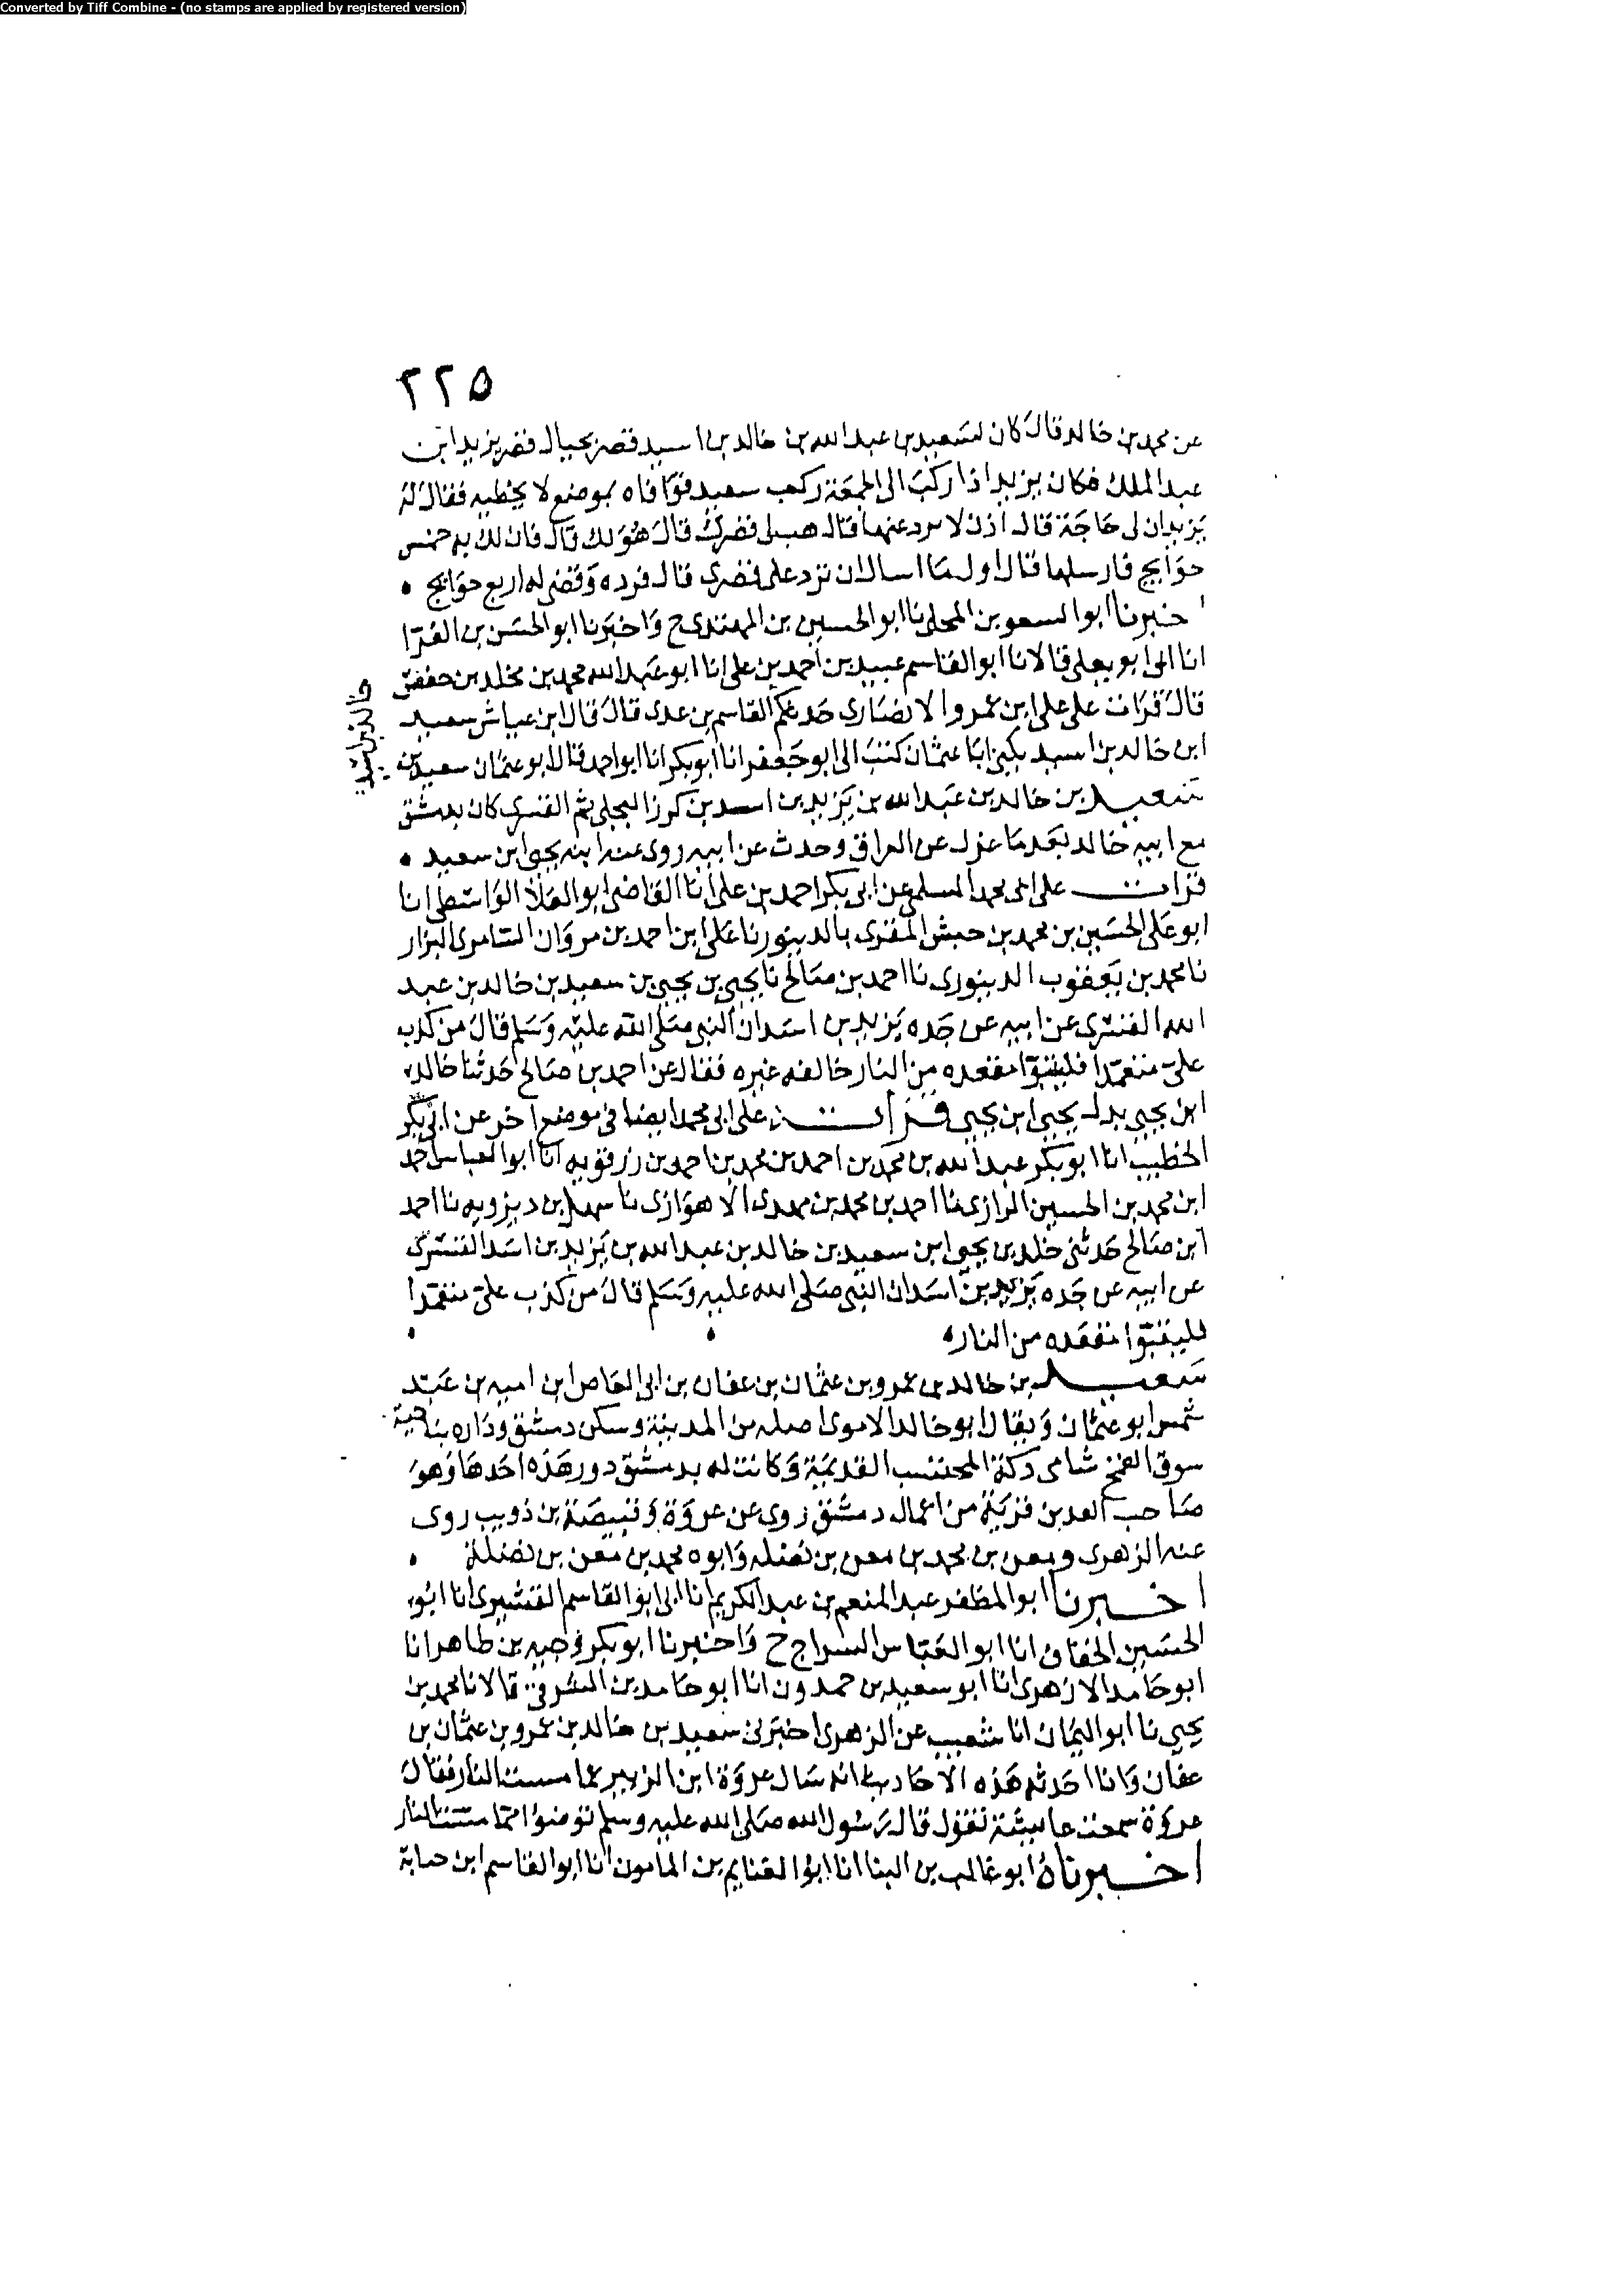 Converted by Tiff Combine - (no stamps are applied by registered version)
٢٢٥
عن محمد بن خالد قال كان لسعيد بن عبد الله بن خالد بن اسيد قصر بحيال قصر يزيد ابن
عبد الملك فكان يزيد اذا ركب الى الجمعة ركب سعيد فوافاه بموضع لا يخطيه فقال له
يزيد ان لى حاجة قال اذن لا ترد عنها قال هب لى قصرك قال هو لك قال فان لك به خمس
حوايج فارسلها قال اول ما اسال ان ترد على قصرى قال فرده وقضى له اربع حوايج
اخبرنا ابو السعو بن المجلى نا ابو الحسين بن المهتدى ح واخبرنا ابو الحسن بن الفرا
انا ابى ابو يعلى قالا نا ابو القاسم عبيد بن احمد بن على انا ابو عبد الله محمد بن مخلد بن حفص
قال قرات على على ابن عمرو الانصارى حدثكم القاسم بن عدى قال قال ابن عياش سعيد
ابن خالد بن اسيد يكنى ابا عثمان كتب الى ابو جعفر انا ابو بكر انا ابو احمد قال ابو عثمان سعيد بن
خالد بن اسيد
سعيد بن خالد بن عبد الله بن يزيد بن اسد بن كرز البجلى ثم القسرى كان بدمشق
مع ابيه خالد بعد ما عزل عن العراق وحدث عن ابيه روى عنه ابنه يحيى ابن سعيد
قرات على ابى محمد السلمى عن ابى بكر احمد بن على انا القاضى ابو العلا الواسطى انا
ابو على الحسين بن محمد بن حبش المقرى بالدينور نا على ابن احمد بن مروان السامرى البزار
نا محمد بن يعقوب الدينورى نا احمد بن صالح نا يحيى بن يحيى بن سعيد بن خالد بن عبد
الله القسرى عن ابيه عن جده يزيد بن اسد ان النبى صلى الله عليه وسلم قال من كذب
على متعمدا فليتبوا مقعده من النار خالفه غيره فقال عن احمد بن صالح حدثنا خالد
ابن يحيى بدل يحيى ابن يحيى قرات على ابى محمد ايضا فى موضع اخر عن ابى بكر
الخطيب انا ابو بكر عبد الله بن محمد بن احمد بن محمد بن احمد بن رزقويه انا ابو العباس احمد
ابن محمد بن الحسين الرازى نا احمد بن محمد بن مهدى الاهوازى نا سهل بن ديزويه نا احمد
ابن صالح حدثنى خلد بن يحيى ابن سعيد بن خالد بن عبد الله بن يزيد بن اسد القسرى
عن ابيه عن جده يزيد بن اسد ان النبى صلى الله عليه وسلم قال من كذب على متعمدا
فليتبوا مقعده من النار
سعيد بن خالد بن عمرو بن عثمان بن عفان بن ابى العاص ابن اميه بن عبد
شمس ابو عثمان ويقال ابو خالد الاموى اصله من المدينة وسكن دمشق وداره بناحية
سوق القمح شامى دكة المحتسب القديمة وكانت له بدمشق دور هذه احدها وهو
صاحب الفدين قرية من اعمال دمشق روى عن عروة وقبيصة بن ذويب روى
عنه الزهرى ومعن بن محمد بن معن بن نضله وابوه محمد بن معن بن نضلة
اخبرنا ابو المظفر عبد المنعم بن عبد الكريم انا ابى ابو القاسم القشيرى انا ابو
الحسين الخفاف انا ابو العباس السراج ح واخبرنا ابو بكر وجيه بن طاهر انا
ابو حامد الازهرى انا ابو سعيد بن حمدون انا ابو حامد بن الشرقى قالا نا محمد بن
يحيى نا ابو اليمان انا شعيب عن الزهرى اخبرنى سعيد بن خالد بن عمرو بن عثمان بن
عفان وانا احدثه هذه الاحاديث انه سال عروة ابن الزبير عما مست النار فقال
عروة سمعت عايشة تقول قال رسول الله صلى الله عليه وسلم توضوا مما مست النار
اخبرناه ابو غالب بن البنا انا ابو الغنايم بن المامون انا ابو القاسم ابن حبابة